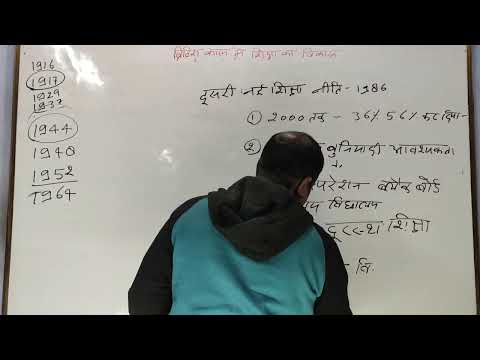 ब्रिटिश काल में शिक्षा का विकास
1916
1917
1929
1937
1944
1948
1952
1964
दूसरी नई शिक्षा नीति - 1986
① 2000 तक - 36% 56% कर दिया -
② बुनियादी आवश्यकता
ब्लैक बोर्ड
विद्यालय
दूरस्थ शिक्षा
वि.